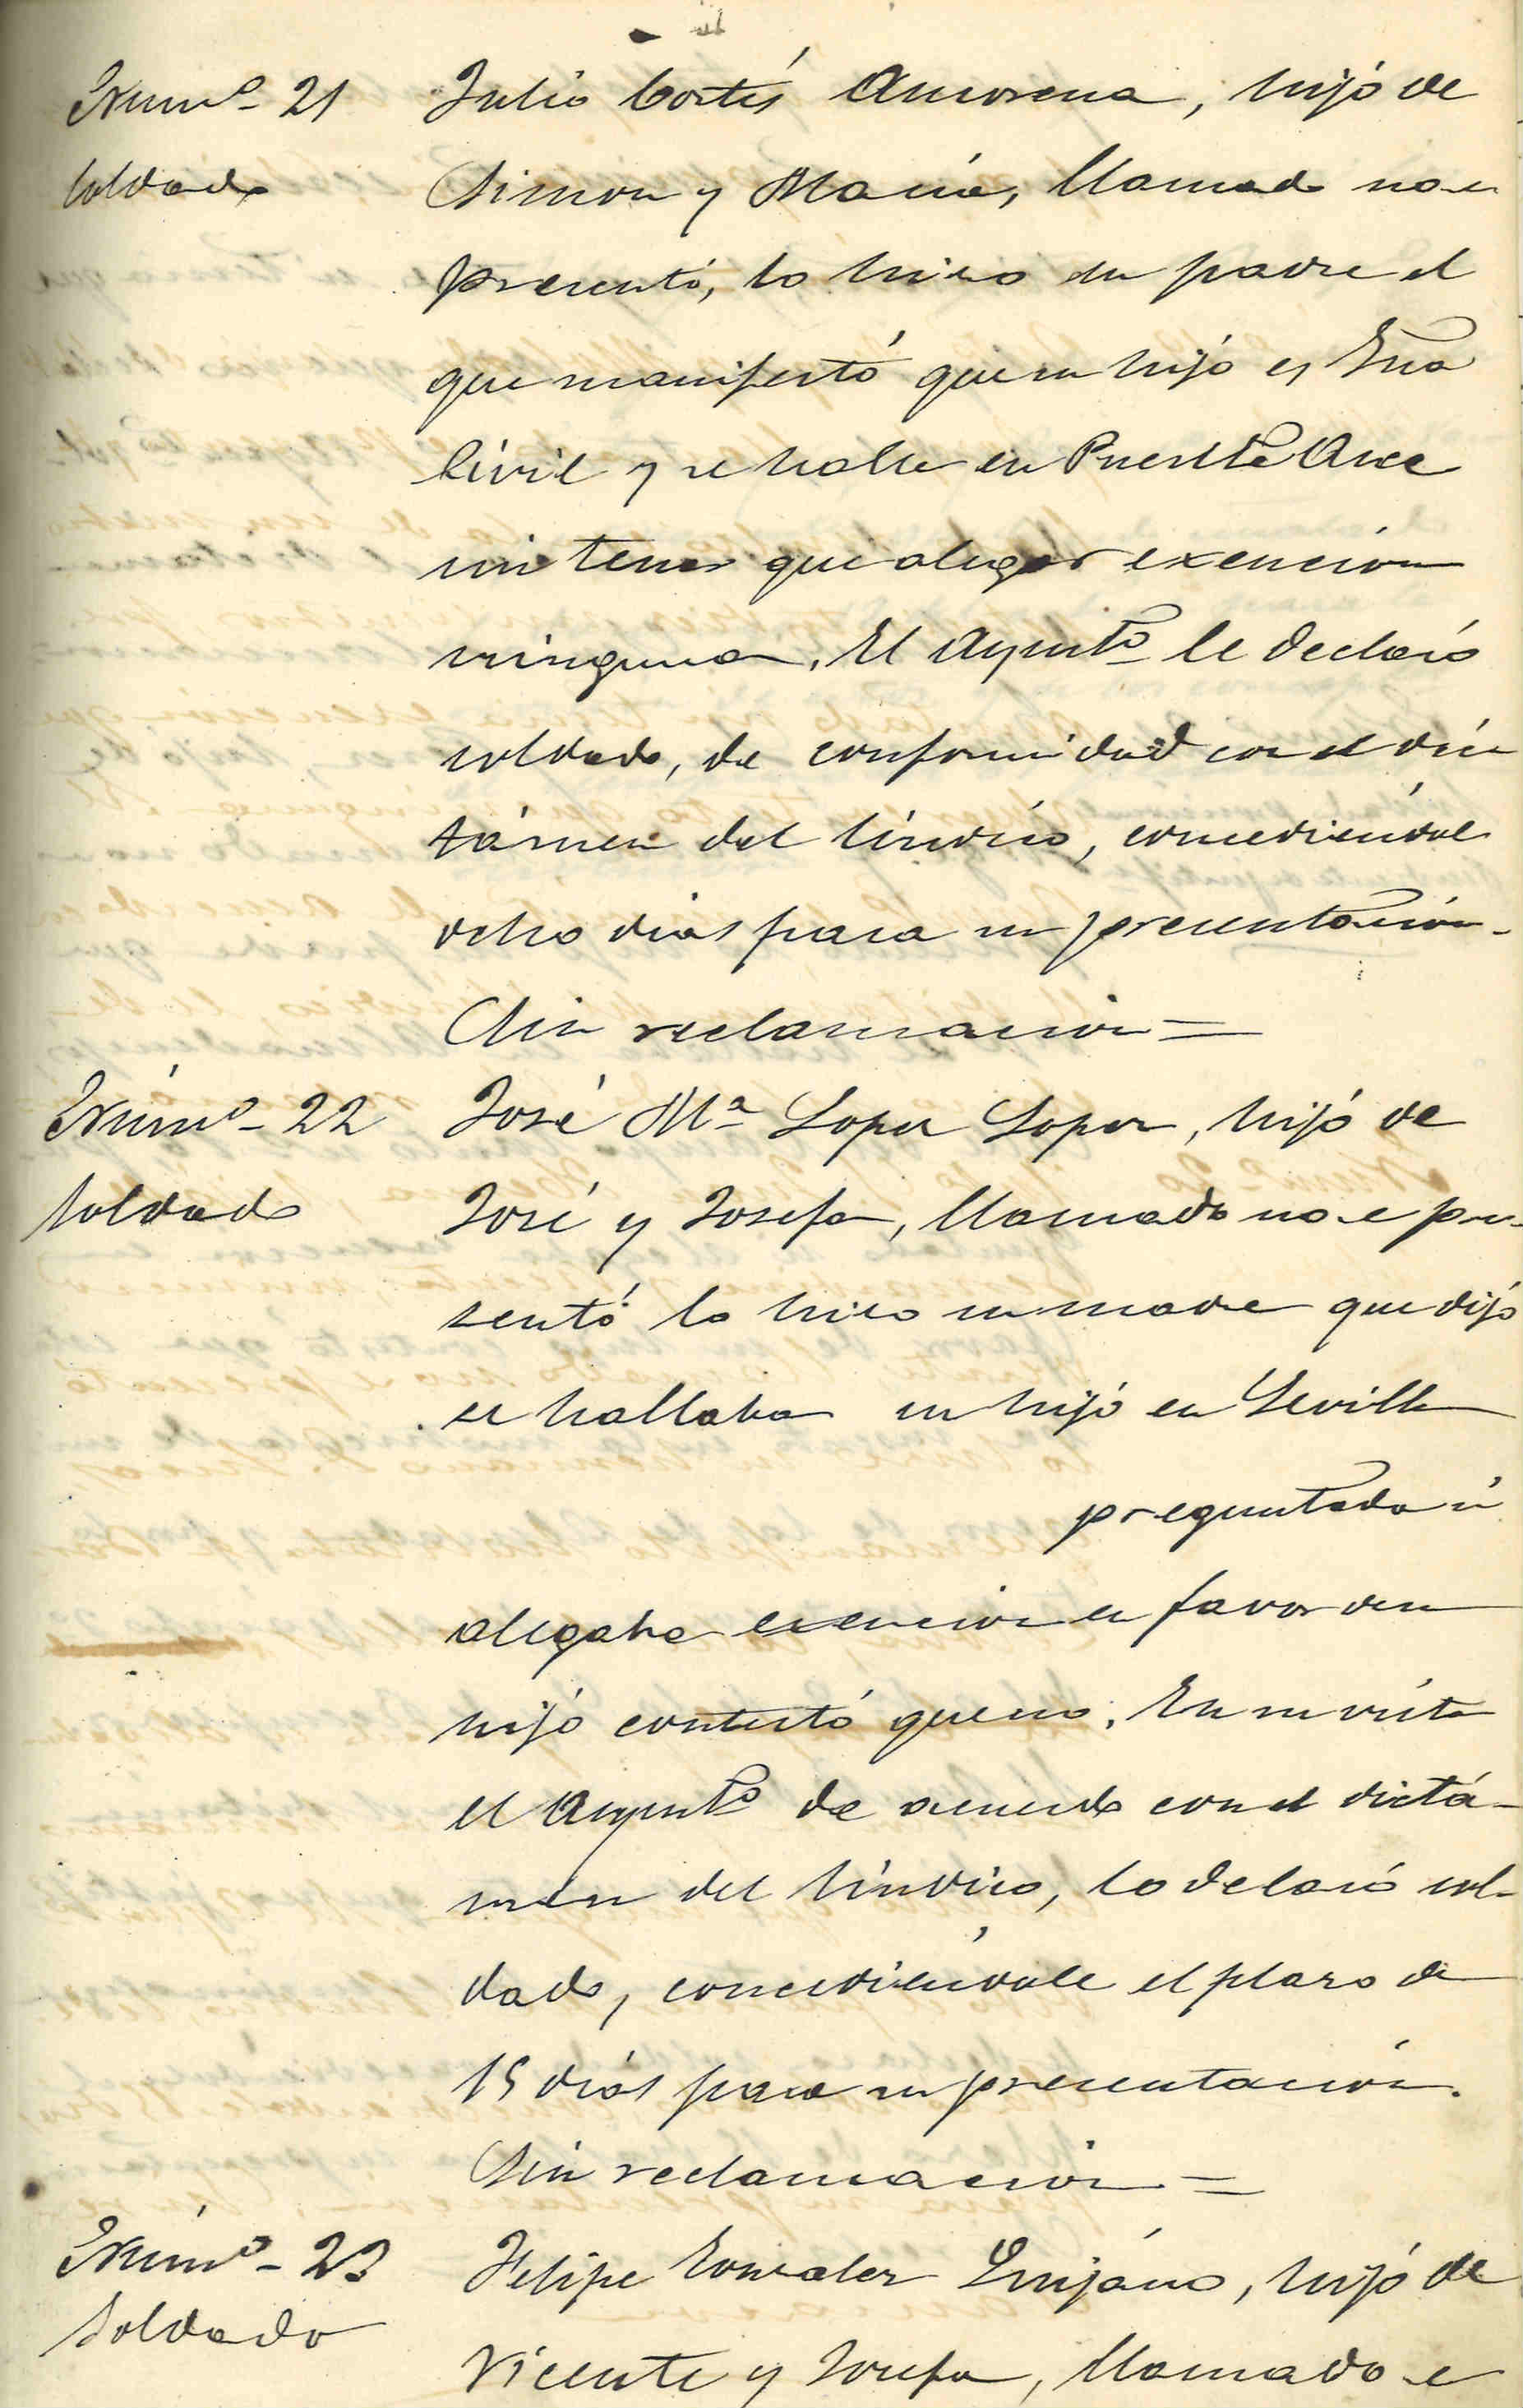 Numº- 21
Soldado
Julio Cortés Amorena, hijo de
Simon y María, llamado no se
presentó, lo hizo su padre el
que manifestó que su hijo es Gua
Civil y se halla en Puente Arce
sin tener que alegar exencion
ninguna. El Ayuntº le declaró
soldado, de conformidad con el dic
támen del Síndico, concediéndole
ocho dias para su presentación.
Sin reclamacion =
Númº- 22
Soldado
José Mª Lopez Lopez, hijo de
José y Josefa, llamado no se pre-
sentó lo hizo su madre que dijo
se hallaba su hijo en Sevilla
preguntada si
alegaba exencion en favor de su
hijo contestó que no. En su vista
el Ayuntº de acuerdo con el dictá-
men del Síndico, lo declaró sol-
dado, concediéndole el plazo de
15 dias para su presentación.
Sin reclamacion =
Númº- 23
Soldado
Felipe Gonzalez Quijano, hijo de
Vicente y Josefa, llamado se